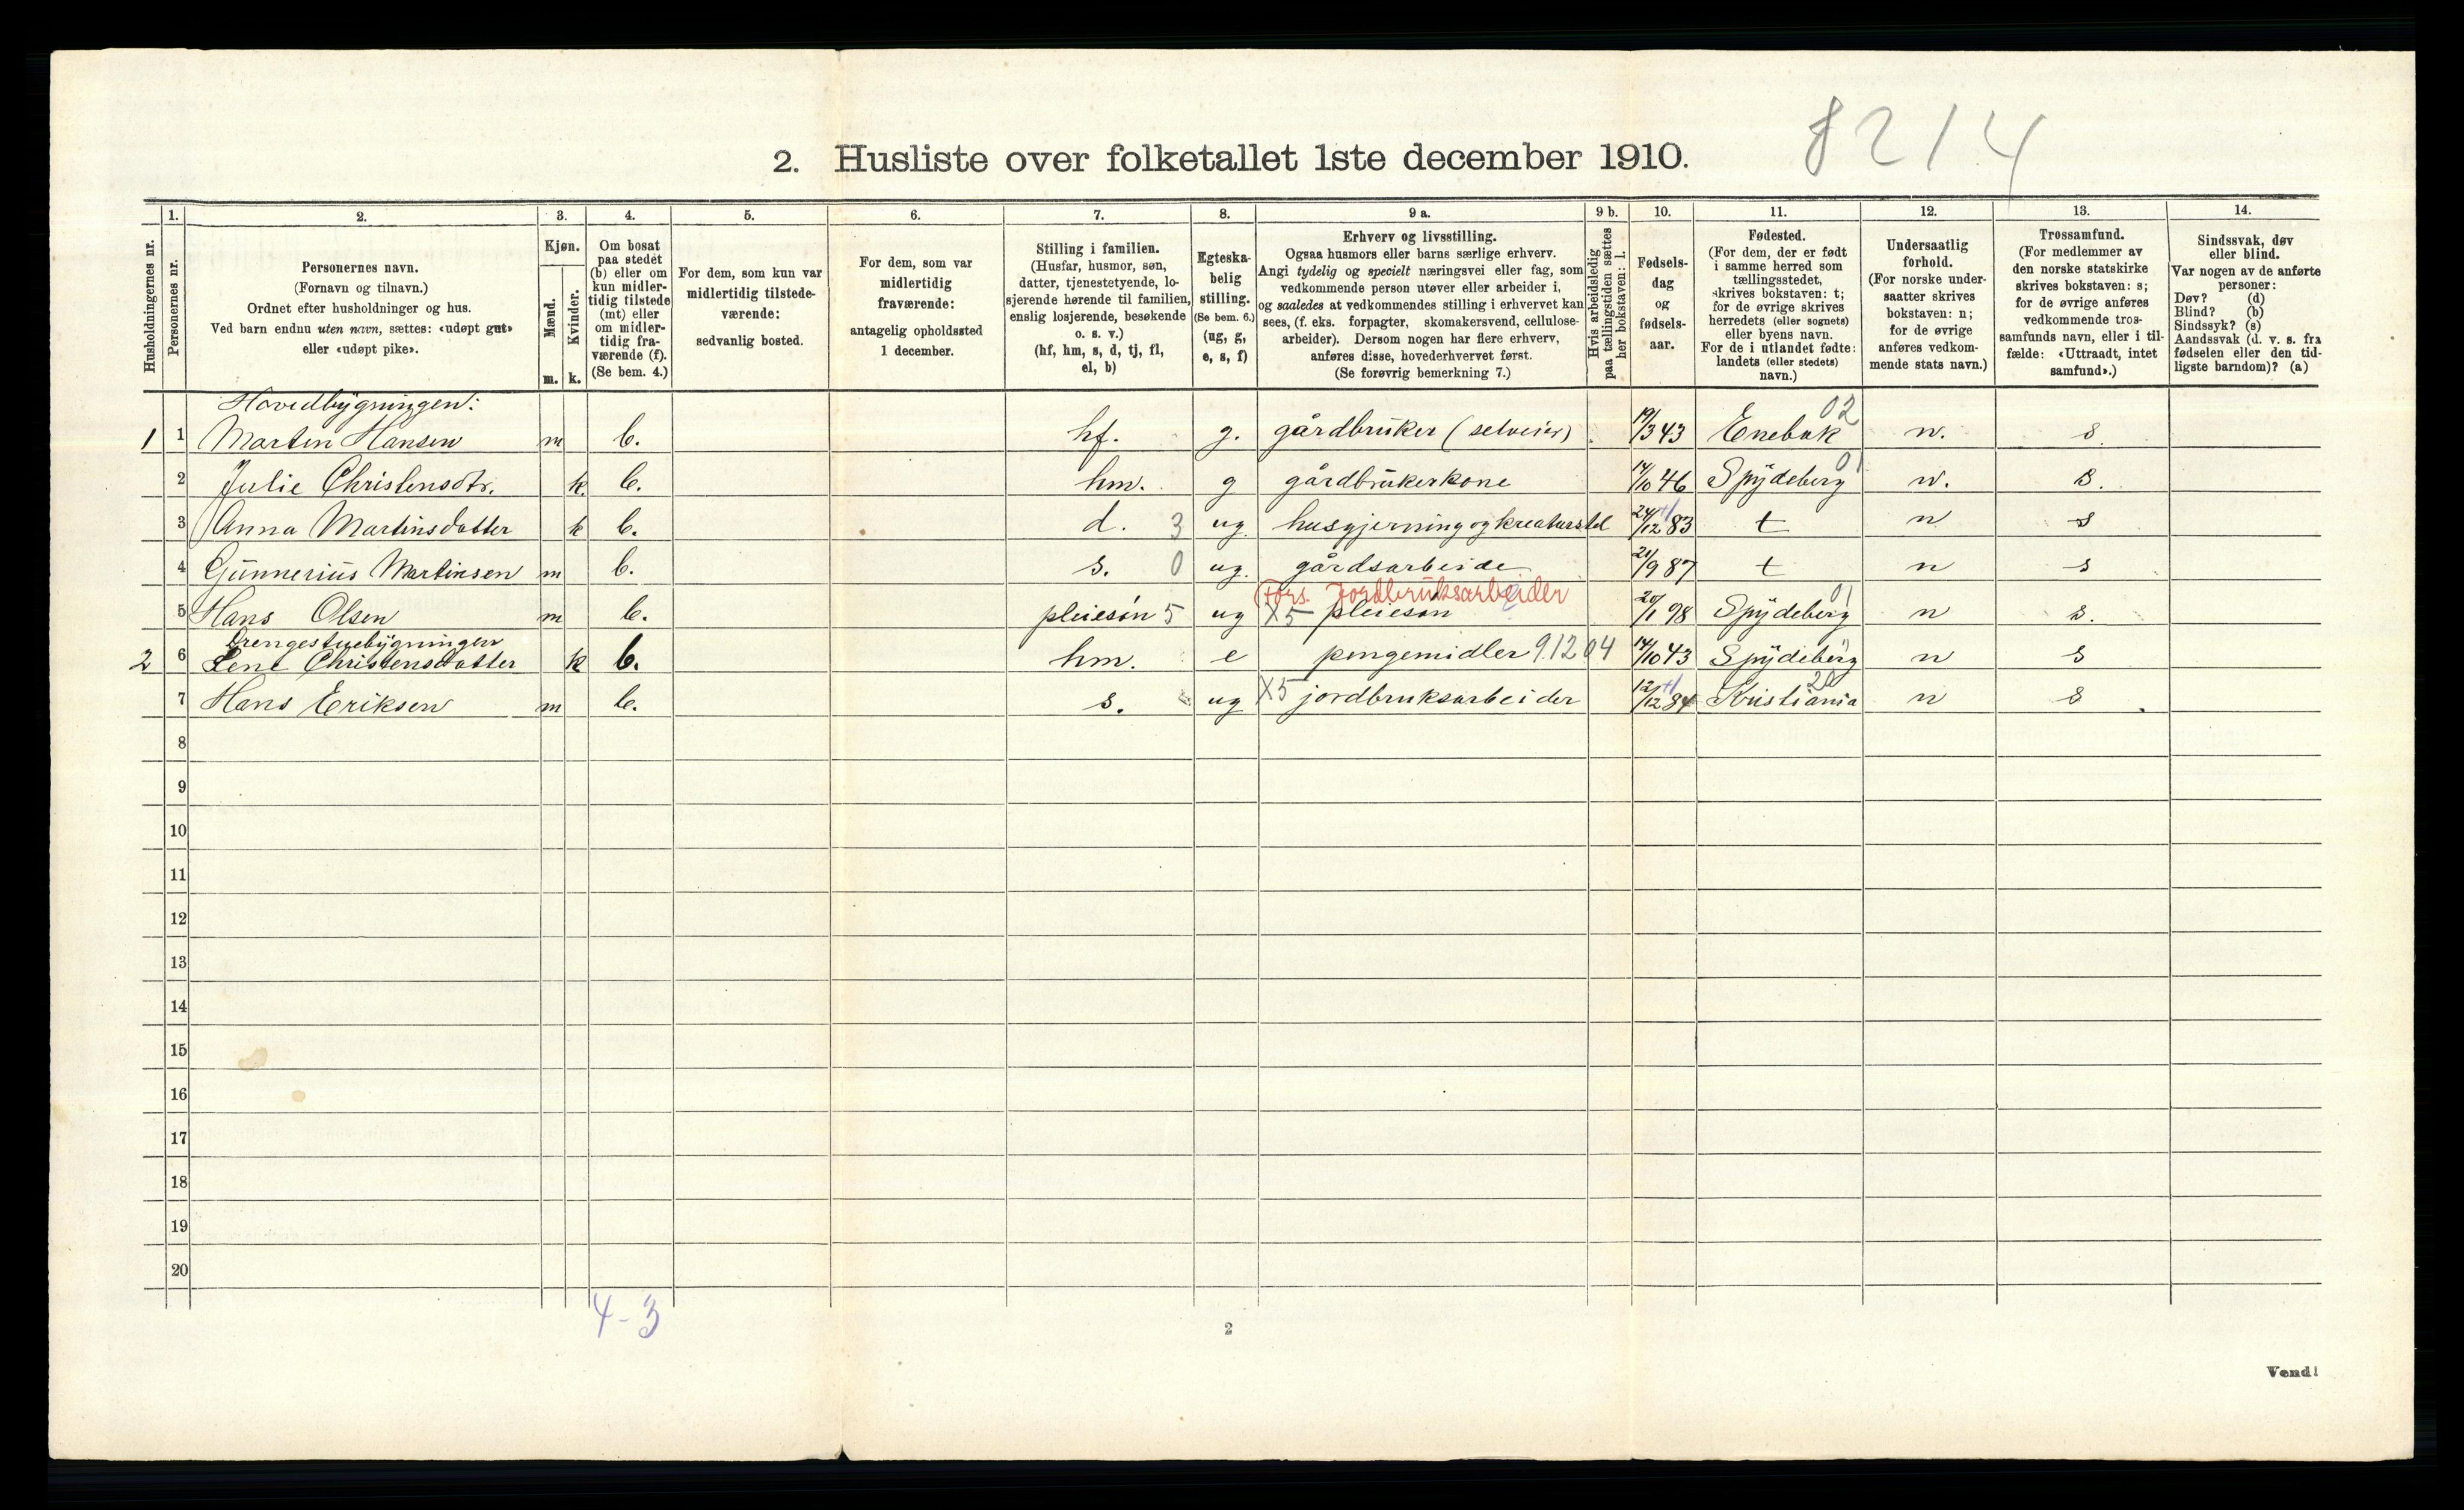 8214
2. Husliste over folketallet 1ste december 1910.
Husholdningernes nr.
1. Personernes nr.
2. Personernes navn.
(Fornavn og tilnavn.)
Ordnet efter husholdninger og hus.
Ved barn endnu uten navn, sættes: «udøpt gut»
eller «udøpt pike».
3. Kjøn.
Mænd. m.
Kvinder. k.
4. Om bosat
paa stedet
(b) eller om
kun midler-
tidig tilstede
(mt) eller
om midler-
tidig fra-
værende (f).
(Se bem. 4.)
5. For dem, som kun var
midlertidig tilstede-
værende:
sedvanlig bosted.
6. For dem, som var
midlertidig
fraværende:
antagelig opholdssted
1 december.
7. Stilling i familien.
(Husfar, husmor, søn,
datter, tjenestetyende, lo-
sjerende hørende til familien,
enslig losjerende, besøkende
o. s. v.)
(hf, hm, s, d, tj, fl,
el, b)
8. Egteska-
belig
stilling.
(Se bem. 6.)
(ug, g,
e, s, f)
9 a. Erhverv og livsstilling.
Ogsaa husmors eller barns særlige erhverv.
Angi tydelig og specielt næringsvei eller fag, som
vedkommende person utøver eller arbeider i,
og saaledes at vedkommendes stilling i erhvervet kan
sees, (f. eks. forpagter, skomakersvend, cellulose-
arbeider). Dersom nogen har flere erhverv,
anføres disse, hovederhvervet først.
(Se forøvrig bemerkning 7.)
9 b. Hvis arbeidsledig
paa tællingstiden sættes
her bokstaven: l.
10. Fødsels-
dag
og
fødsels-
aar.
11. Fødested.
(For dem, der er født
i samme herred som
tællingsstedet,
skrives bokstaven: t;
for de øvrige skrives
herredets (eller sognets)
eller byens navn.
For de i utlandet fødte:
landets (eller stedets)
navn.)
12. Undersaatlig
forhold.
(For norske under-
saatter skrives
bokstaven: n;
for de øvrige
anføres vedkom-
mende stats navn.)
13. Trossamfund.
(For medlemmer av
den norske statskirke
skrives bokstaven: s;
for de øvrige anføres
vedkommende tros-
samfunds navn, eller i til-
fælde: «Uttraadt, intet
samfund».)
14. Sindssvak, døv
eller blind.
Var nogen av de anførte
personer:
Døv? (d)
Blind? (b)
Sindssyk? (s)
Aandssvak (d. v. s. fra
fødselen eller den tid-
ligste barndom)? (a)
Hovedbygningen:
1 1 Martin Hansen m b. hf. g. gårdbruker (selveier) 19/3 43 Enebak 02 n. s.
2 Julie Christensdtr. k. b. hm. g gårdbrukerkone 14/10 46 Spydeberg 01 n. s.
3 Anna Martinsdatter k b. d. 3 ug. husgjerning og kreaturstel 24/12 83 +1 t n s
4 Gunnerius Martinsen m b. s. 0 ug. gårdsarbeide 21/9 87 t n s
Fors. Jordbruksarbeider
5 Hans Olsen m b. pleiesön 5 ug X5 pleieson 20/1 98 Spydeberg 01 n s.
Drengestuebygningen
2 6 Lene Christensdatter k b. hm. e pengemidler 91204 14/10 43 Spydeberg n s
7 Hans Eriksen m b. s. ug X5 jordbruksarbeider 12/12 84 +1 Kristiania 20 n s
8
9
10
11
12
13
14
15
16
17
18
19
20
4-3
2
Vend!